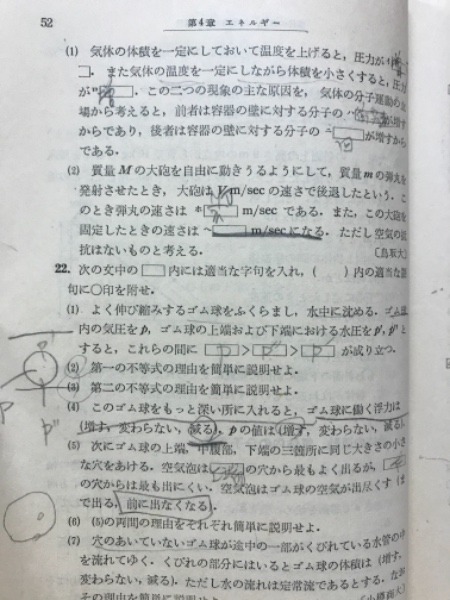 52
第4章 エネルギー
(1) 気体の体積を一定にしておいて温度を上げると，圧力が
□．また気体の温度を一定にしながら体積を小さくすると，圧力
が□．この二つの現象の主な原因を，気体の分子運動の
場から考えると，前者は容器の壁に対する分子の が増す
からであり，後者は容器の壁に対する分子の が増すから
である．
(2) 質量 M の大砲を自由に動きうるようにして，質量 m の弾丸を
発射させたとき，大砲は V m/sec の速さで後退したという．こ
のとき弾丸の速さは m/sec である．また，この大砲を
固定したときの速さは m/sec になる．ただし空気の抵
抗はないものと考える． 〔鳥取大〕
22. 次の文中の □ 内には適当な字句を入れ，( ) 内の適当な
句に○印を附せ．
(1) よく伸び縮みするゴム球をふくらまし，水中に沈める．ゴム球
内の気圧を p，ゴム球の上端および下端における水圧を p′, p″ と
すると，これらの間に p > p″ > p′ が成り立つ．
(2) 第一の不等式の理由を簡単に説明せよ．
(3) 第二の不等式の理由を簡単に説明せよ．
(4) このゴム球をもっと深い所に入れると，ゴム球に働く浮力は
(増す，変わらない，減る)．p の値は (増す，変わらない，減る)
(5) 次にゴム球の上端，中腹部，下端の三箇所に同じ大きさの小さ
な穴をあける．空気泡は の穴から最もよく出るが，
の穴からは最も出にくい．空気泡はゴム球の空気が出尽くす (ま
で出る，前に出なくなる)．
(6) (5)の両問の理由をそれぞれ簡単に説明せよ．
(7) 穴のあいていないゴム球が途中の一部がくびれている水管の中
を流れてゆく．くびれの部分にはいるとゴム球の体積は (増す，
変わらない，減る)．ただし水の流れは定常流であるとする．なお
その理由を簡単に説明せよ．
p
p″